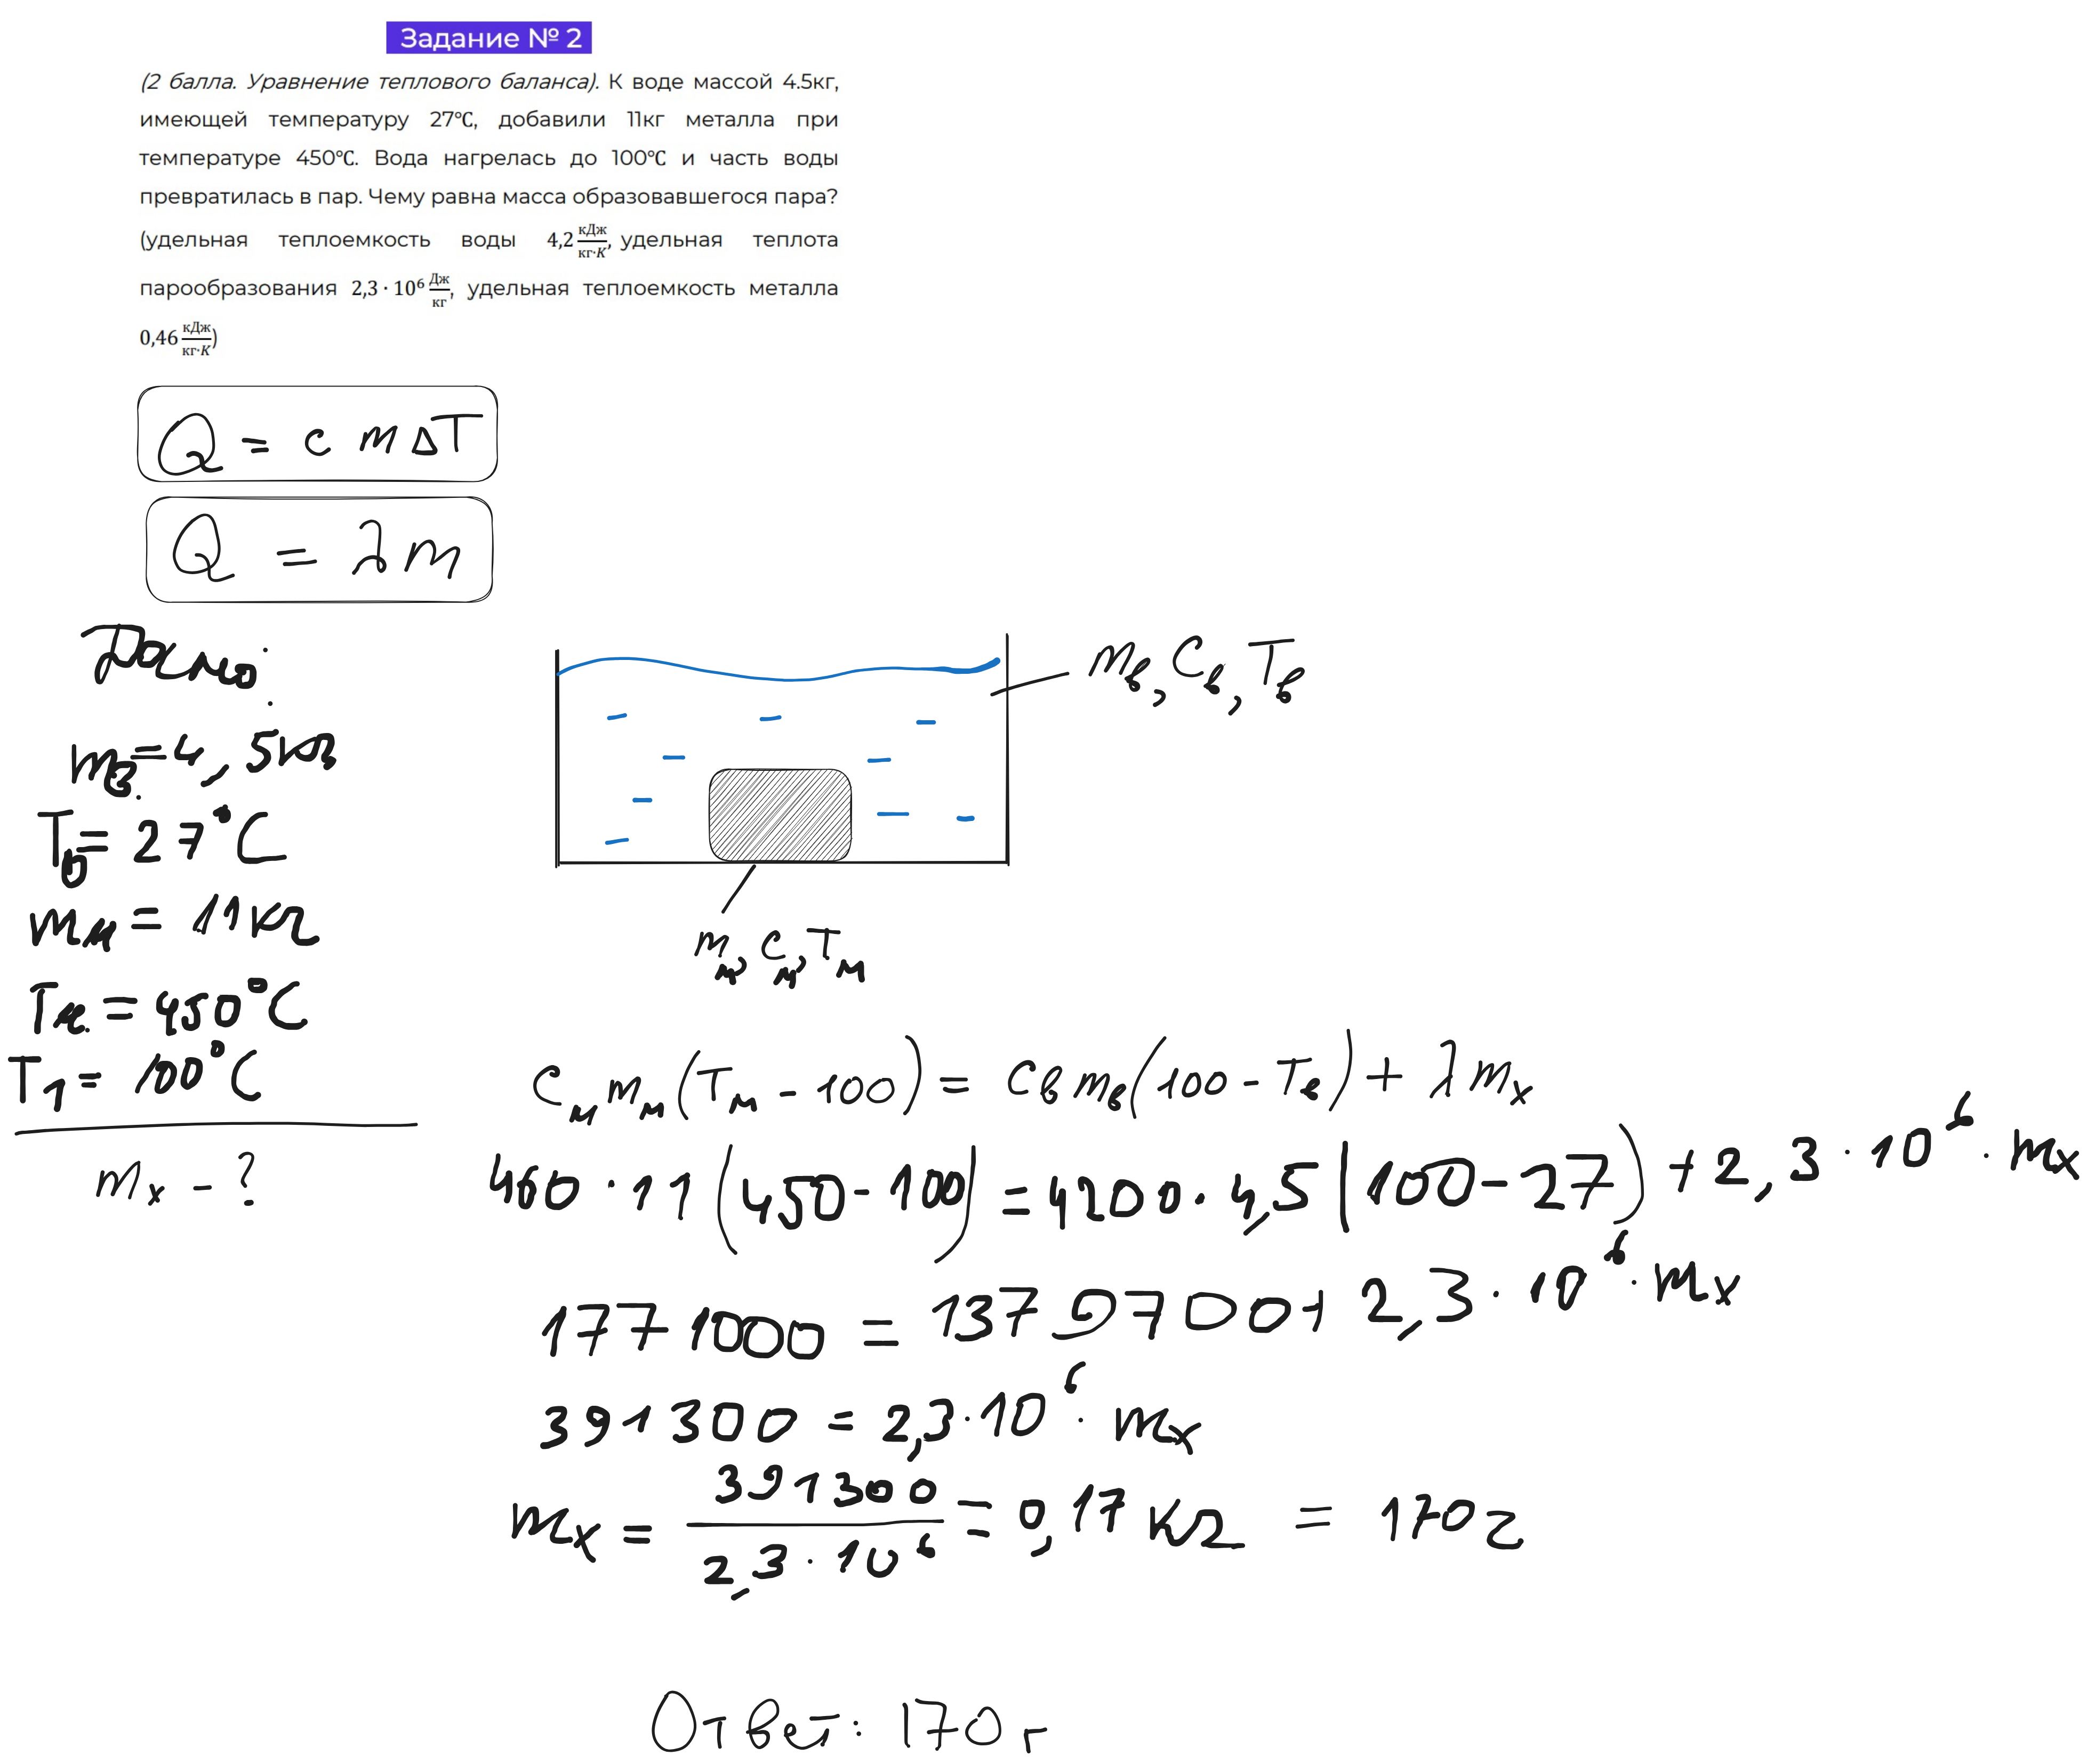 Задание № 2
(2 балла. Уравнение теплового баланса). К воде массой 4.5кг,
имеющей температуру 27℃, добавили 11кг металла при
температуре 450℃. Вода нагрелась до 100℃ и часть воды
превратилась в пар. Чему равна масса образовавшегося пара?
(удельная теплоемкость воды 4,2 кДж/кг·К, удельная теплота
парообразования 2,3 · 10⁶ Дж/кг, удельная теплоемкость металла
0,46 кДж/кг·К)
Q = c m ΔT
Q = λ m
Дано:
mв = 4,5кг
Tв = 27°C
mм = 11кг
Tм = 450°C
T₁ = 100°C
mₓ - ?
mв, Cв, Tв
mм, cм, Tм
cм mм (Tм - 100) = cв mв (100 - Tв) + λ mₓ
460 · 11 (450 - 100) = 4200 · 4,5 (100 - 27) + 2,3 · 10⁶ · mₓ
1771000 = 1379700 + 2,3 · 10⁶ · mₓ
391300 = 2,3 · 10⁶ · mₓ
mₓ = 391300 / 2,3 · 10⁶ = 0,17 кг = 170 г
Ответ: 170 г